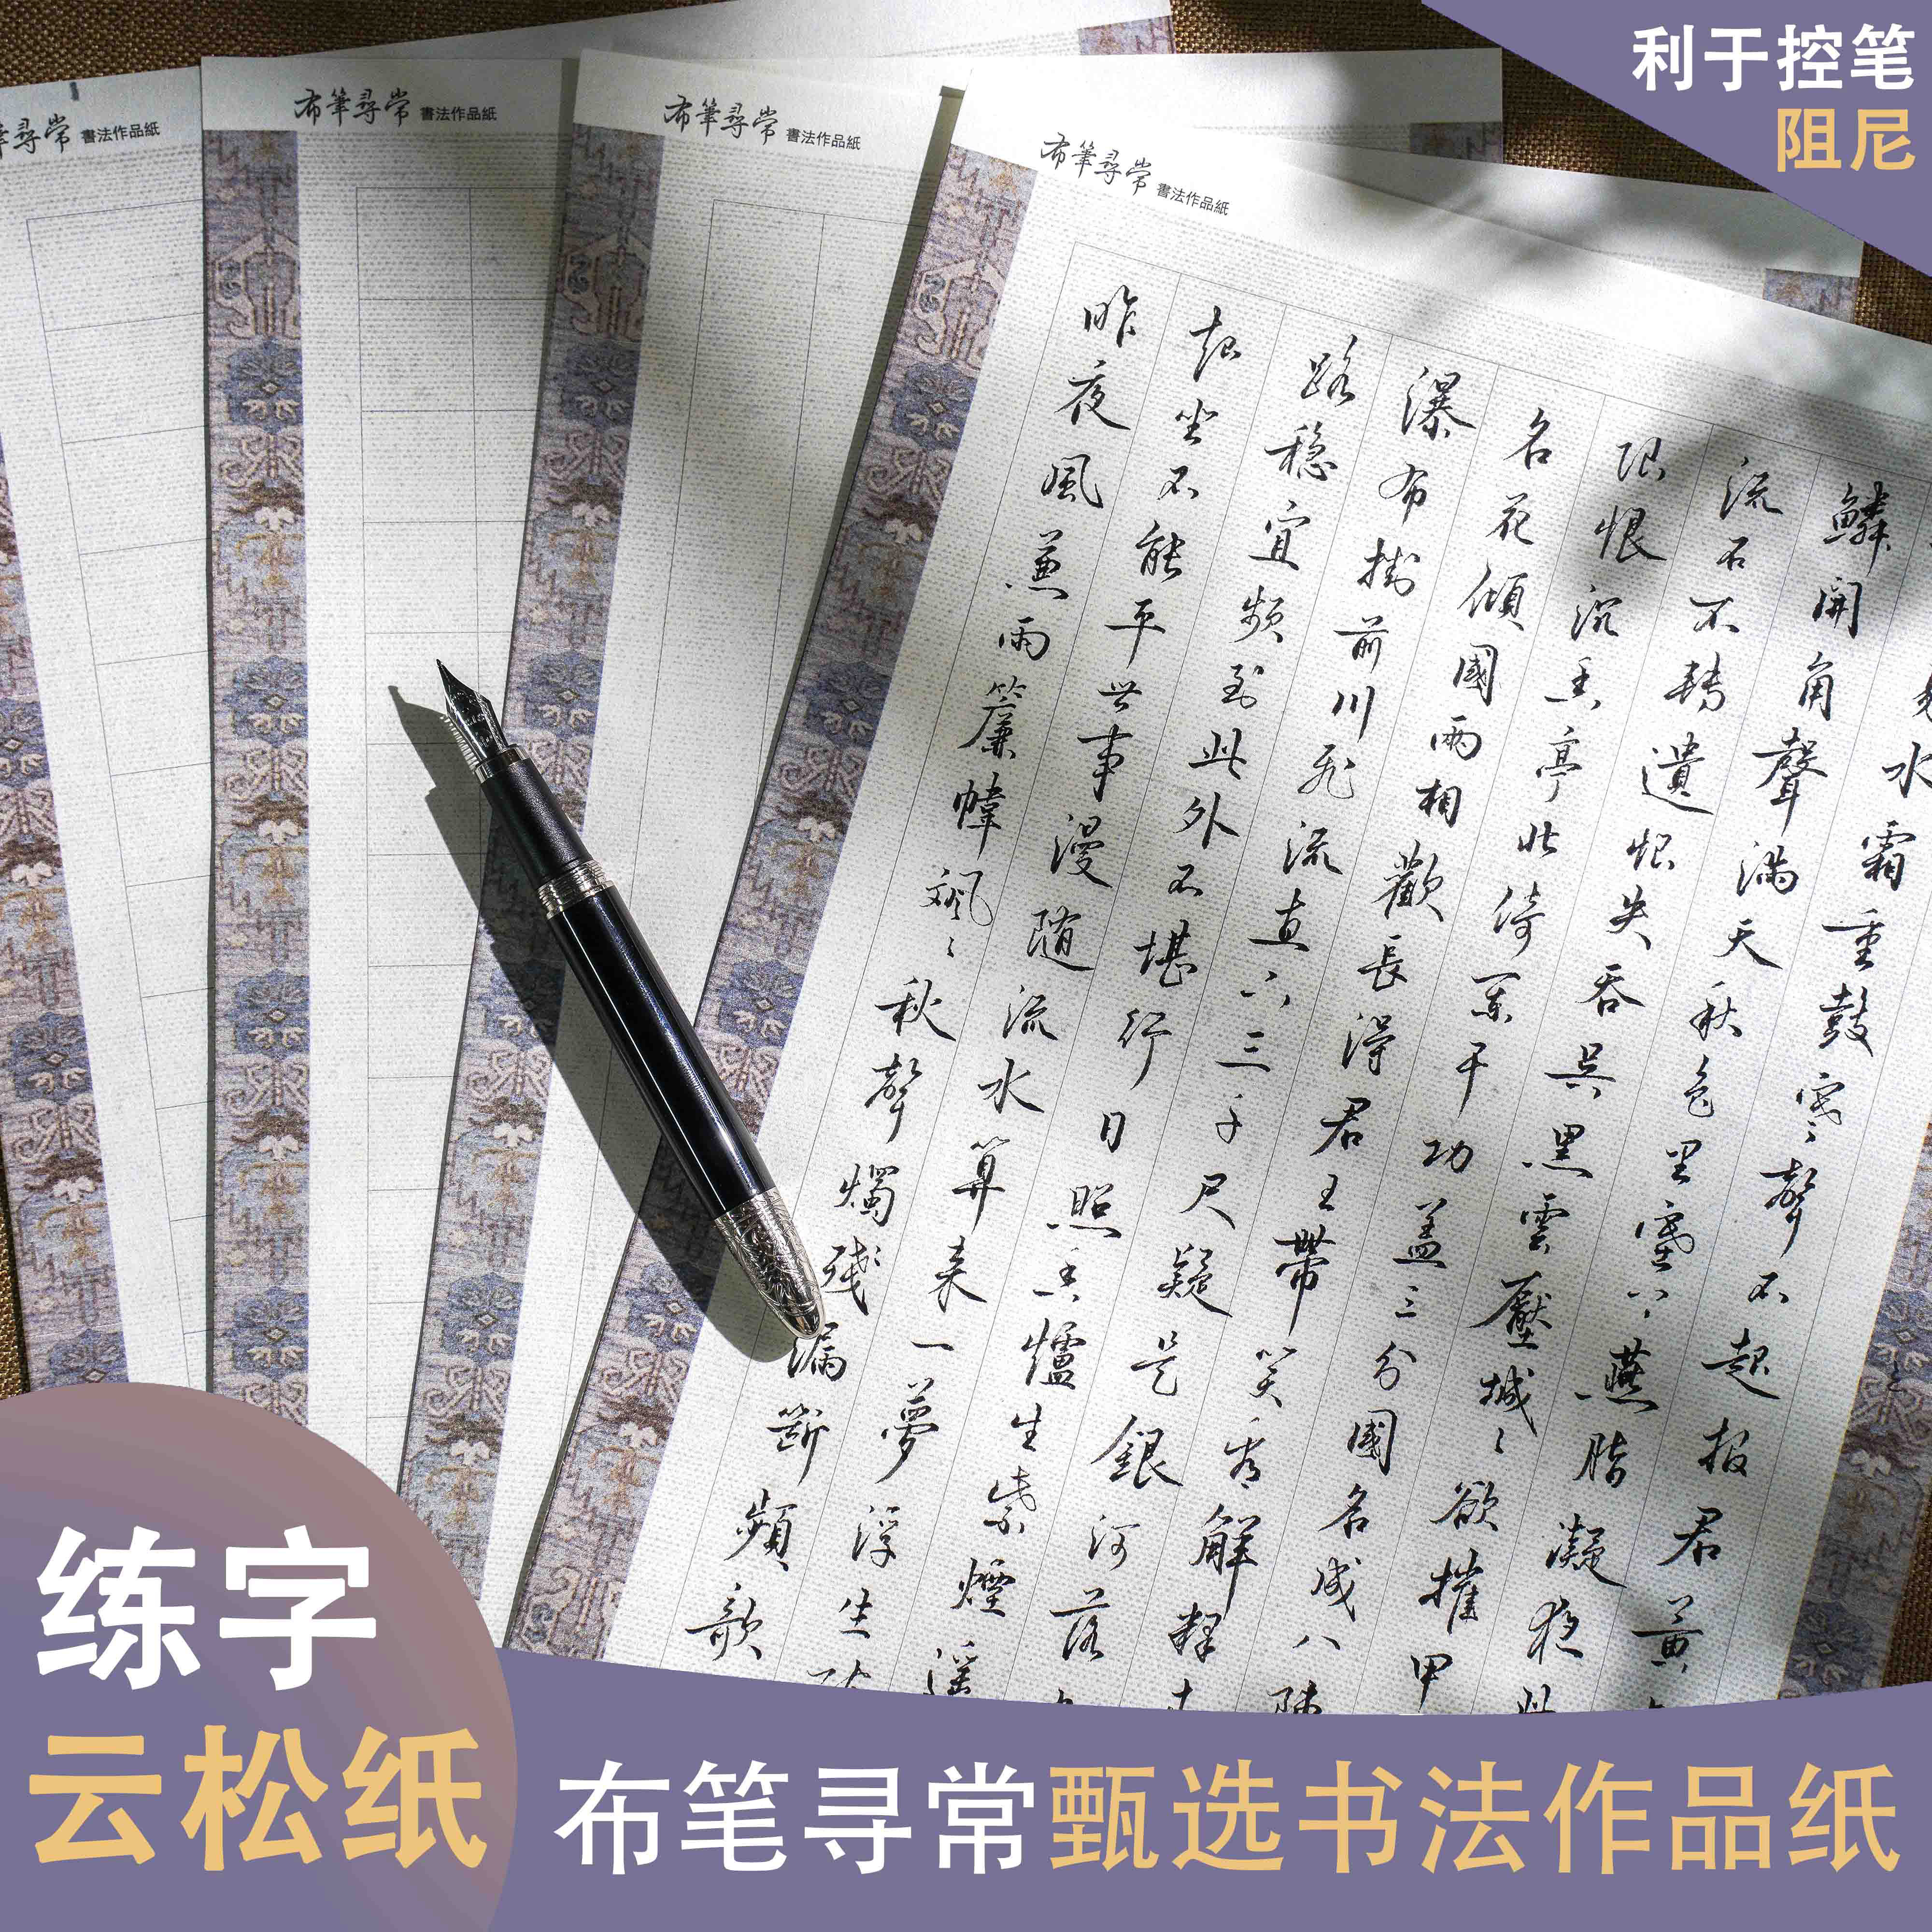 利于控笔
阻尼
筆尋常 書法作品紙
布筆尋常 書法作品紙
布筆尋常 書法作品紙
布筆尋常 書法作品紙
昨夜風兼雨簾幃颯〻秋聲燭殘漏斷頻欹
起坐不能平世事漫隨流水算来一夢浮生
路稳宜频到此外不堪行日照香爐生紫煙遥
瀑布掛前川飛流直下三千尺疑是銀河落
名花傾國兩相歡長得君王帶笑看解釋
限恨沉香亭北倚闌干功盖三分國名成八陣
流石不轉遺恨失吞吳黑雲壓城〻欲摧甲
鱗開角聲滿天秋色里塞上燕脂凝夜
水霜重鼓寒聲不起报君黄
练字
云松纸
布笔寻常甄选书法作品纸